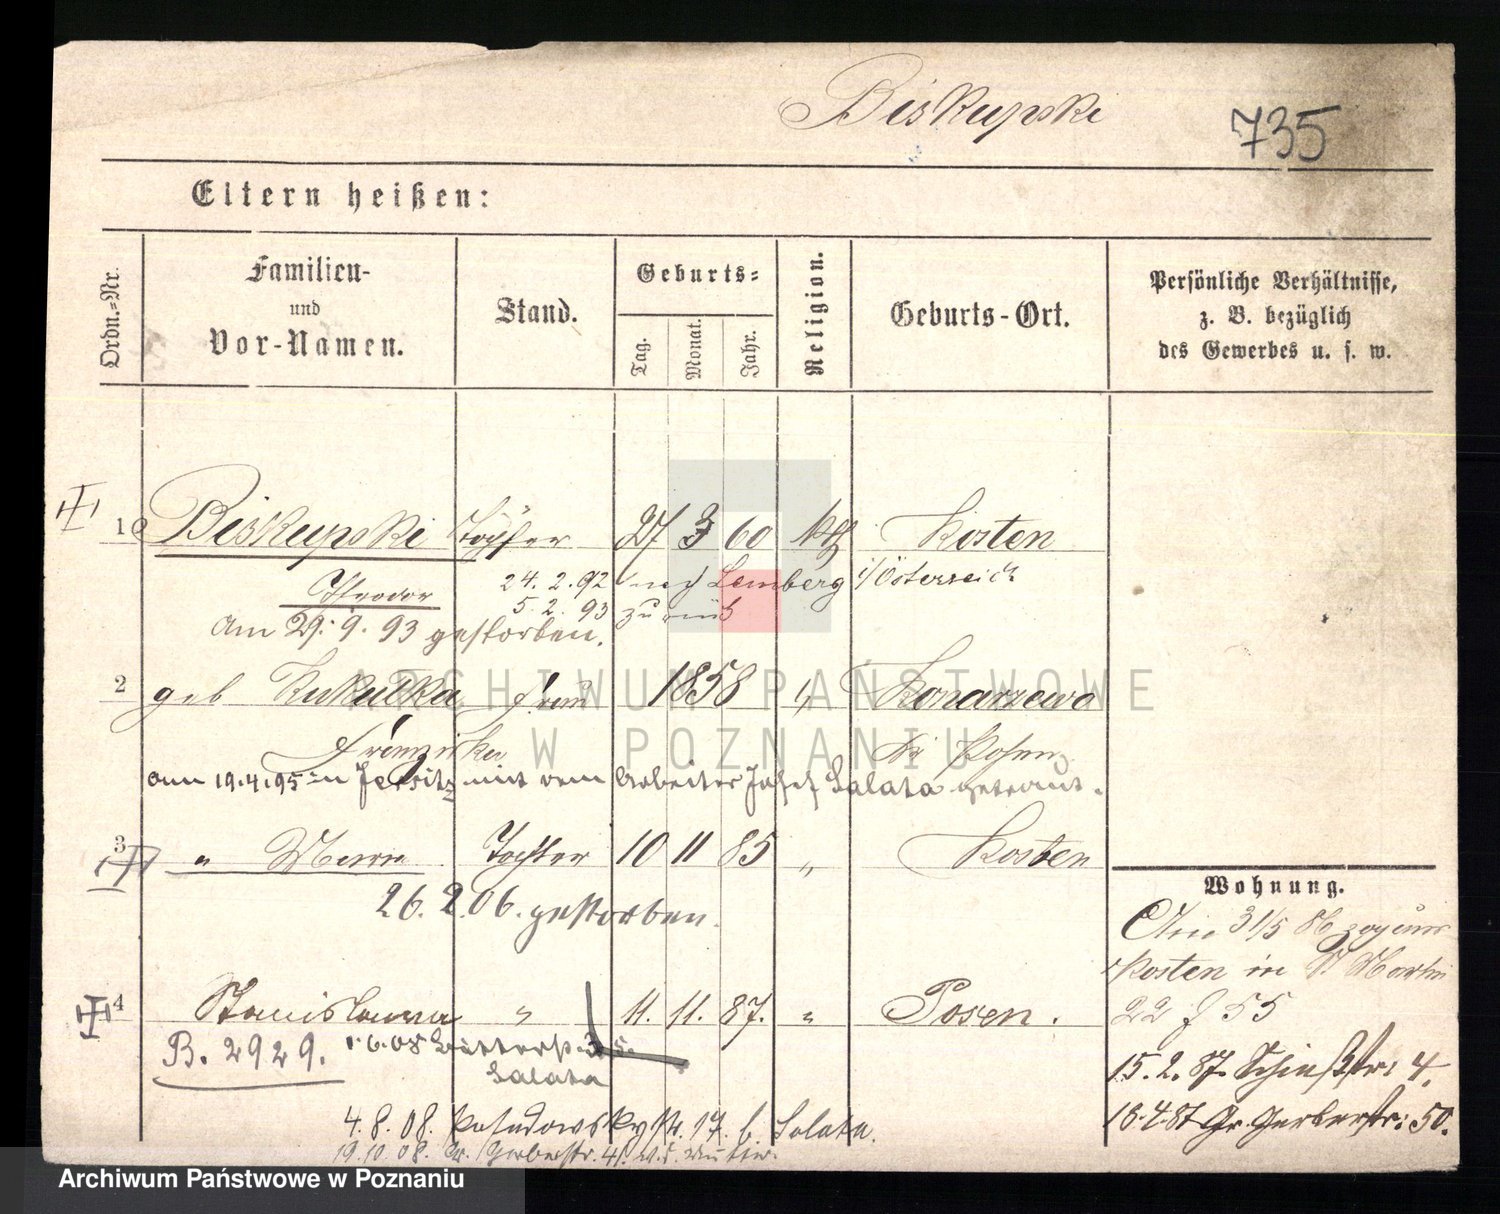 Biskupski
735
Eltern heißen:
Ordn.-Nr.
Familien-
und
Vor-Namen.
Stand.
Geburts-
Tag.
Monat.
Jahr.
Religion.
Geburts-Ort.
Persönliche Verhältnisse,
z. B. bezüglich
des Gewerbes u. s. w.
1 Biskupski Töpfer 27 3 60 kth Kosten
Theodor 24. 2. 92 nach Lemberg i/Österreich
5. 2. 93 zurück
am 29. 9. 93 gestorben.
2 geb Kukulka Frau 1858 " Konarzewo
Franziska Kr Posen
am 19.4.95 in Jersitz mit dem Arbeiter Josef Salata getraut.
3 " Maria Tochter 10 11 85 " Kosten
26. 2. 06. gestorben.
4 Stanislawa " 11. 11. 87. " Posen.
B. 2929. 1.6.08 35.
Salata
4. 8. 08. Posadowskystr. 17. b. Salata.
19.10.08. Gr. Gerberstr. 41. b. d. Mutter.
Wohnung.
Am 31/5 86 zog aus
Kosten in St Martin
22 f 55
15. 2. 87. Schießstr: 4.
16.4.87 Gr. Gerberstr: 50.
ARCHIWUM PAŃSTWOWE
W POZNANIU
Archiwum Państwowe w Poznaniu